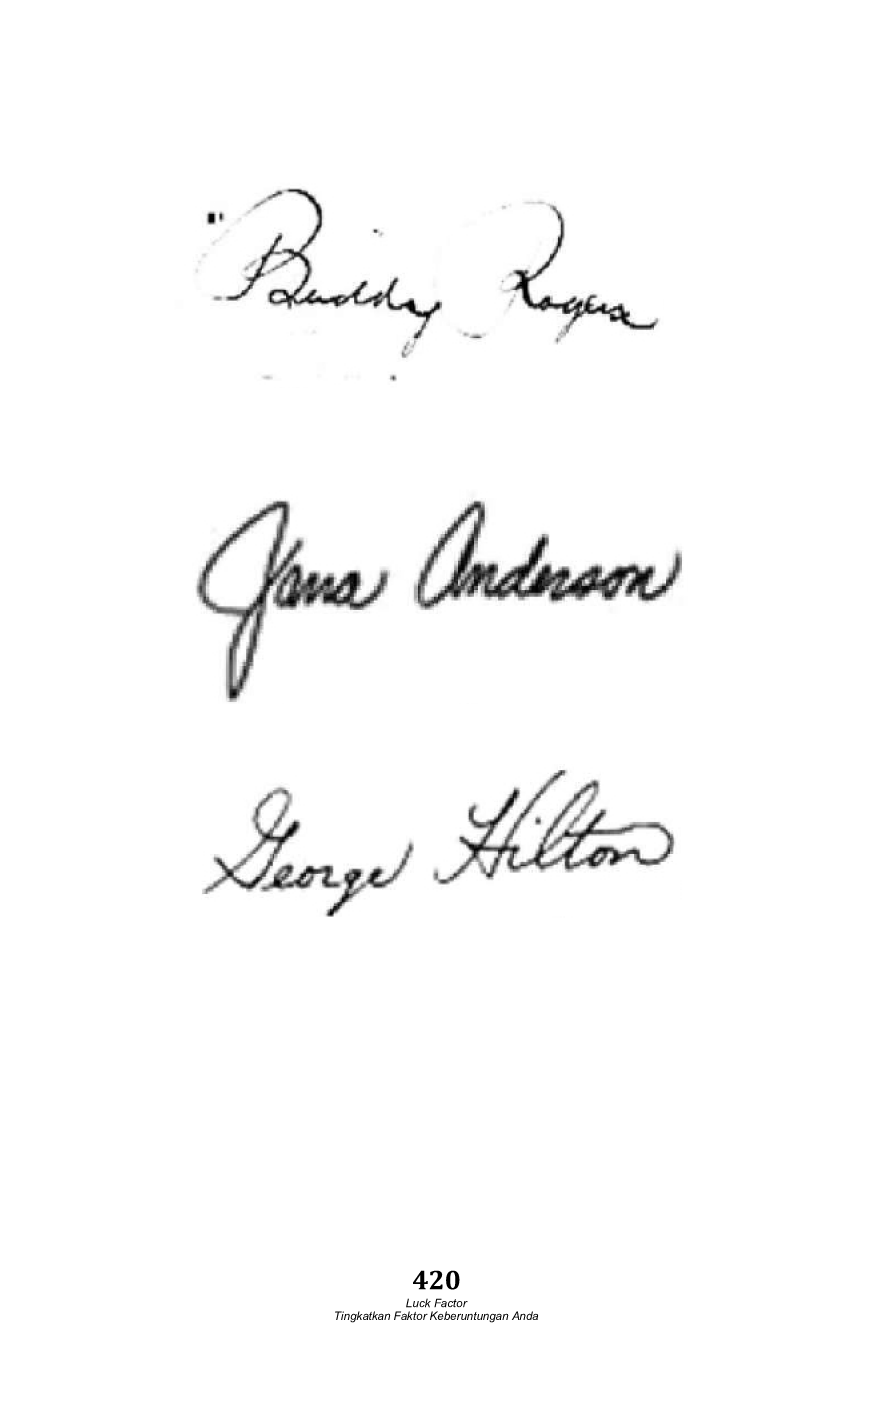 "Buddy Rogers
Jana Anderson
George Hilton
420
Luck Factor
Tingkatkan Faktor Keberuntungan Anda